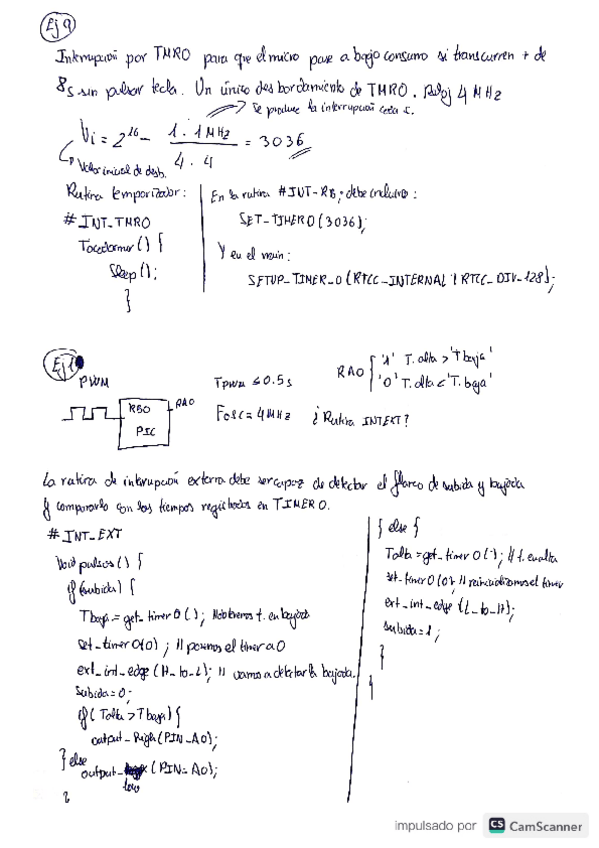 Ej 9
Interrupción por TMR0 para que el micro pase a bajo consumo si transcurren + de
8s sin pulsar tecla. Un único desbordamiento de TMR0. Reloj 4 MHz
Se produce la interrupción cada s.
Vi = 2^16 - 1 · 1MHz / 4 · 4 = 3036
Valor inicial de desb.
Rutina temporizador:
#INT_TMR0
Tocadormir() {
Sleep();
}
En la rutina #INT-RB; debe incluirse:
SET-TIMER0(3036);
Y en el main:
SETUP_TIMER_0(RTCC_INTERNAL | RTCC_DIV_128);
Ej1
PWM
RB0
PIC
RA0
Tpwm ≤ 0.5s
Fosc = 4MHz
RA0 { '1' T. alta > 'T baja'
'0' T. alta < 'T. baja'
¿Rutina INTEXT?
La rutina de interrupción externa debe ser capaz de detectar el flanco de subida y bajada
y compararlo con los tiempos registrados en TIMER0.
#INT_EXT
Void pulsos() {
if(subida) {
Tbaja = get_timer0(); //obtenemos t. en bajada
set_timer0(0); // ponemos el timer a 0
ext_int_edge(H_to_L); // vamos a detectar la bajada.
Subida = 0;
if(Talta > Tbaja) {
output_high(PIN_A0);
} else
output_low(PIN_A0);
} else {
Talta = get_timer0(); // t. en alta
set_timer0(0); // reinicializamos el timer
ext_int_edge(L_to_H);
subida = 1;
}
}
impulsado por CS CamScanner